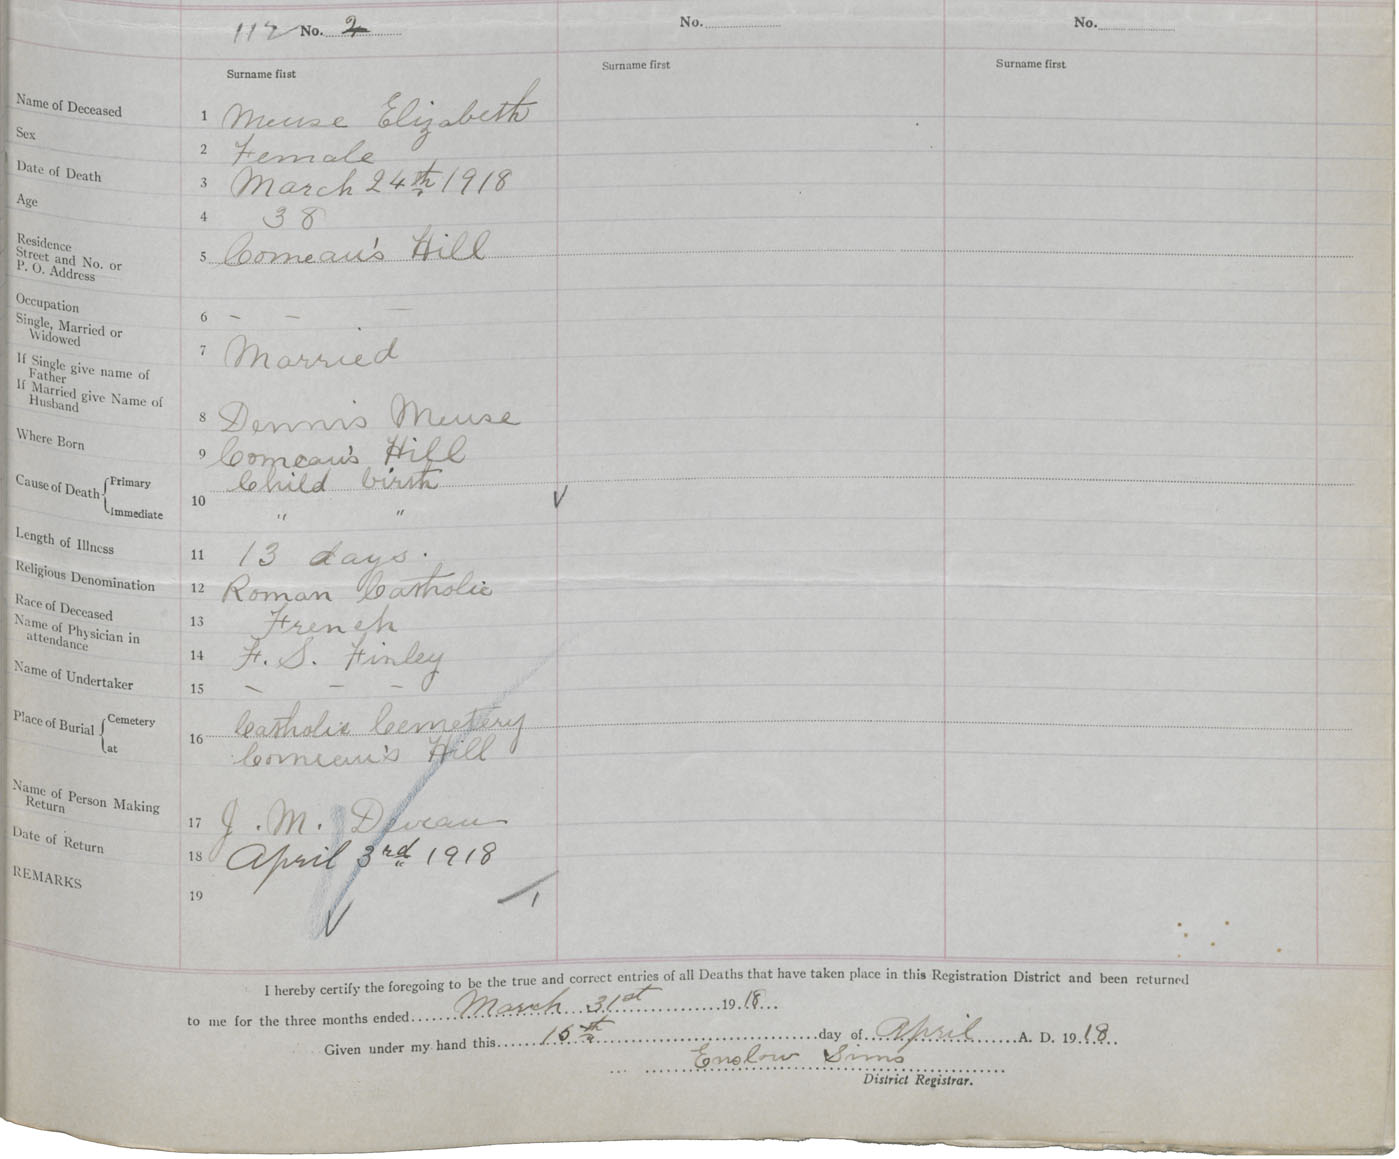 112 No. 2 No. No.
Surname first Surname first Surname first
Name of Deceased 1 Meuse Elizabeth
Sex 2 Female
Date of Death 3 March 24th 1918
Age 4 38
Residence
Street and No. or
P. O. Address 5 Comeau's Hill
Occupation 6 – – –
Single, Married or
Widowed 7 Married
If Single give name of
Father
If Married give Name of
Husband 8 Dennis Meuse
Where Born 9 Comeau's Hill
Cause of Death Primary 10 Child birth
Immediate " "
Length of Illness 11 13 days.
Religious Denomination 12 Roman Catholic
Race of Deceased 13 French
Name of Physician in
attendance 14 F. S. Finley
Name of Undertaker 15 – – –
Place of Burial Cemetery 16 Catholic Cemetery
at Comeau's Hill
Name of Person Making
Return 17 J. M. Deveau
Date of Return 18 April 3rd 1918
REMARKS 19
I hereby certify the foregoing to be the true and correct entries of all Deaths that have taken place in this Registration District and been returned
to me for the three months ended March 31st 1918
Given under my hand this 15th day of April A. D. 1918
Enslow Sims
District Registrar.